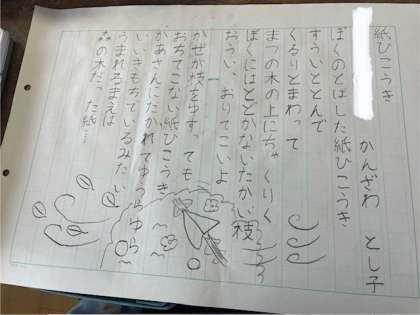 紙ひこうき
かんざわ とし子
ぼくのとばした紙ひこうき
すういととんで
くるりとまわって
まつの木の上にちゃくりく
ぼくにはとどかないたかい枝
おうい、おりてこいよ
かぜが枝をゆすっても
おちてこない紙ひこうき
かあさんにだかれてゆうらゆら
いいきもちでいるみたい
うまれるまえは
森の木だった紙…